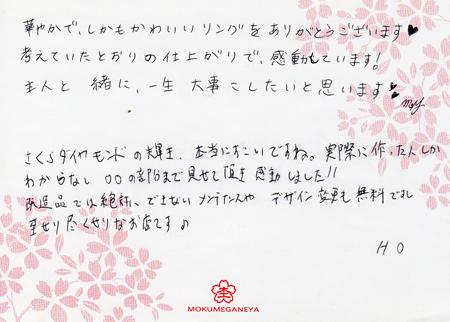 華やかで、しかもかわいいリングをありがとうございます♥
考えていたとおりの仕上がりで、感動しています!
主人と一緒に、一生大事にしたいと思います♥
さくらダイヤモンドの輝き、本当にすごいですね。実際に作った人しか
わからない○○の部分まで見せて頂き感動しました!!
既造品では絶対にできないメンテナンスや デザイン変更も無料ですし
至せり尽くせりなお店です♪
H O
MOKUMEGANEYA